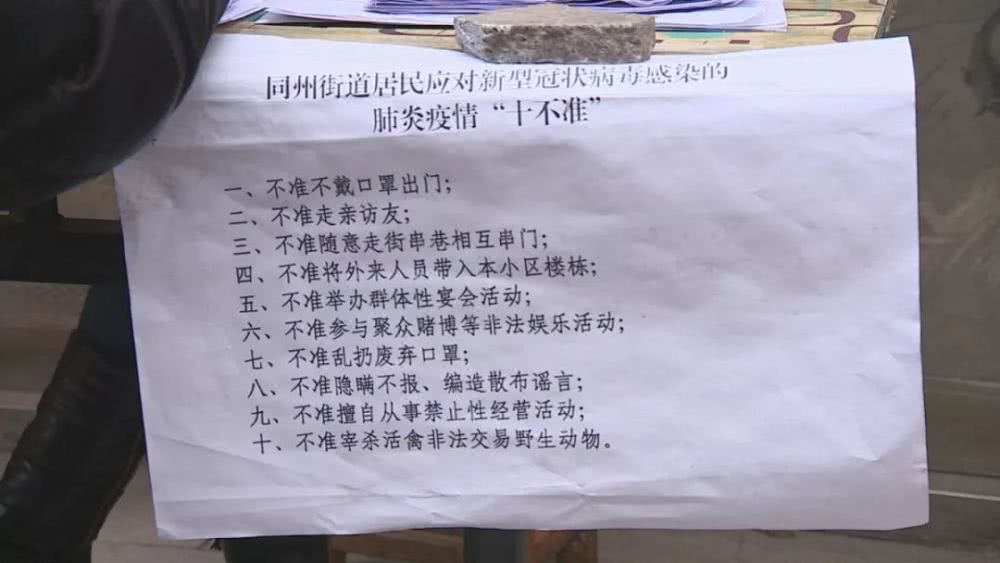 同州街道居民应对新型冠状病毒感染的
肺炎疫情“十不准”
一、不准不戴口罩出门；
二、不准走亲访友；
三、不准随意走街串巷相互串门；
四、不准将外来人员带入本小区楼栋；
五、不准举办群体性宴会活动；
六、不准参与聚众赌博等非法娱乐活动；
七、不准乱扔废弃口罩；
八、不准隐瞒不报、编造散布谣言；
九、不准擅自从事禁止性经营活动；
十、不准宰杀活禽非法交易野生动物。